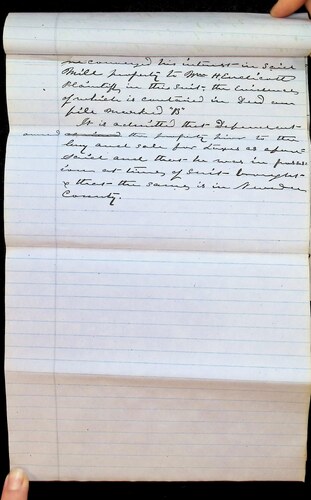 conveyed his interest in said
Mill property to Wm H. Endicott
Plaintiff in this suit. the evidences
of which is contained in Deed on
file marked "B"
It is admitted that Defendant
the property prior to the
levy and sale for taxes as afore-
said and that he was in possess-
ion at times of suit brought
& that the same is in
County.